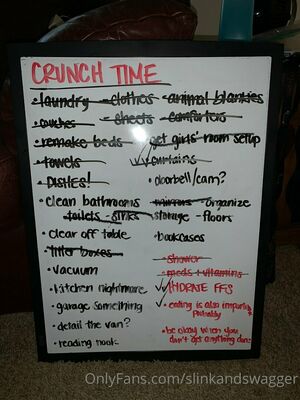 CRUNCH TIME
• laundry - clothes - animal blankies
• couches - sheets - comforters
• remake beds • get girls' room setup
• towels ✓ curtains
• DISHES! • doorbell/cam?
• clean bathrooms • mirrors - organize
- toilets - sinks storage - floors
• clear off table • bookcases
• litter boxes - shower
• vacuum - meds + vitamins
• kitchen nightmare ✓ HYDRATE FFS
• garage something • eating is also important probably
• detail the van? • be okay when you
• reading nook don't get anything done
OnlyFans.com/slinkandswagger